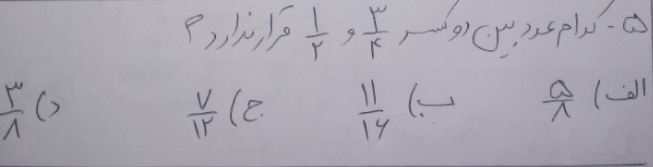 ۵- کدام عدد بین دو کسر ۳/۴ و ۱/۲ قرار ندارد؟
الف) ۵/۸ ب) ۱۱/۱۶ ج) ۷/۱۲ د) ۳/۸